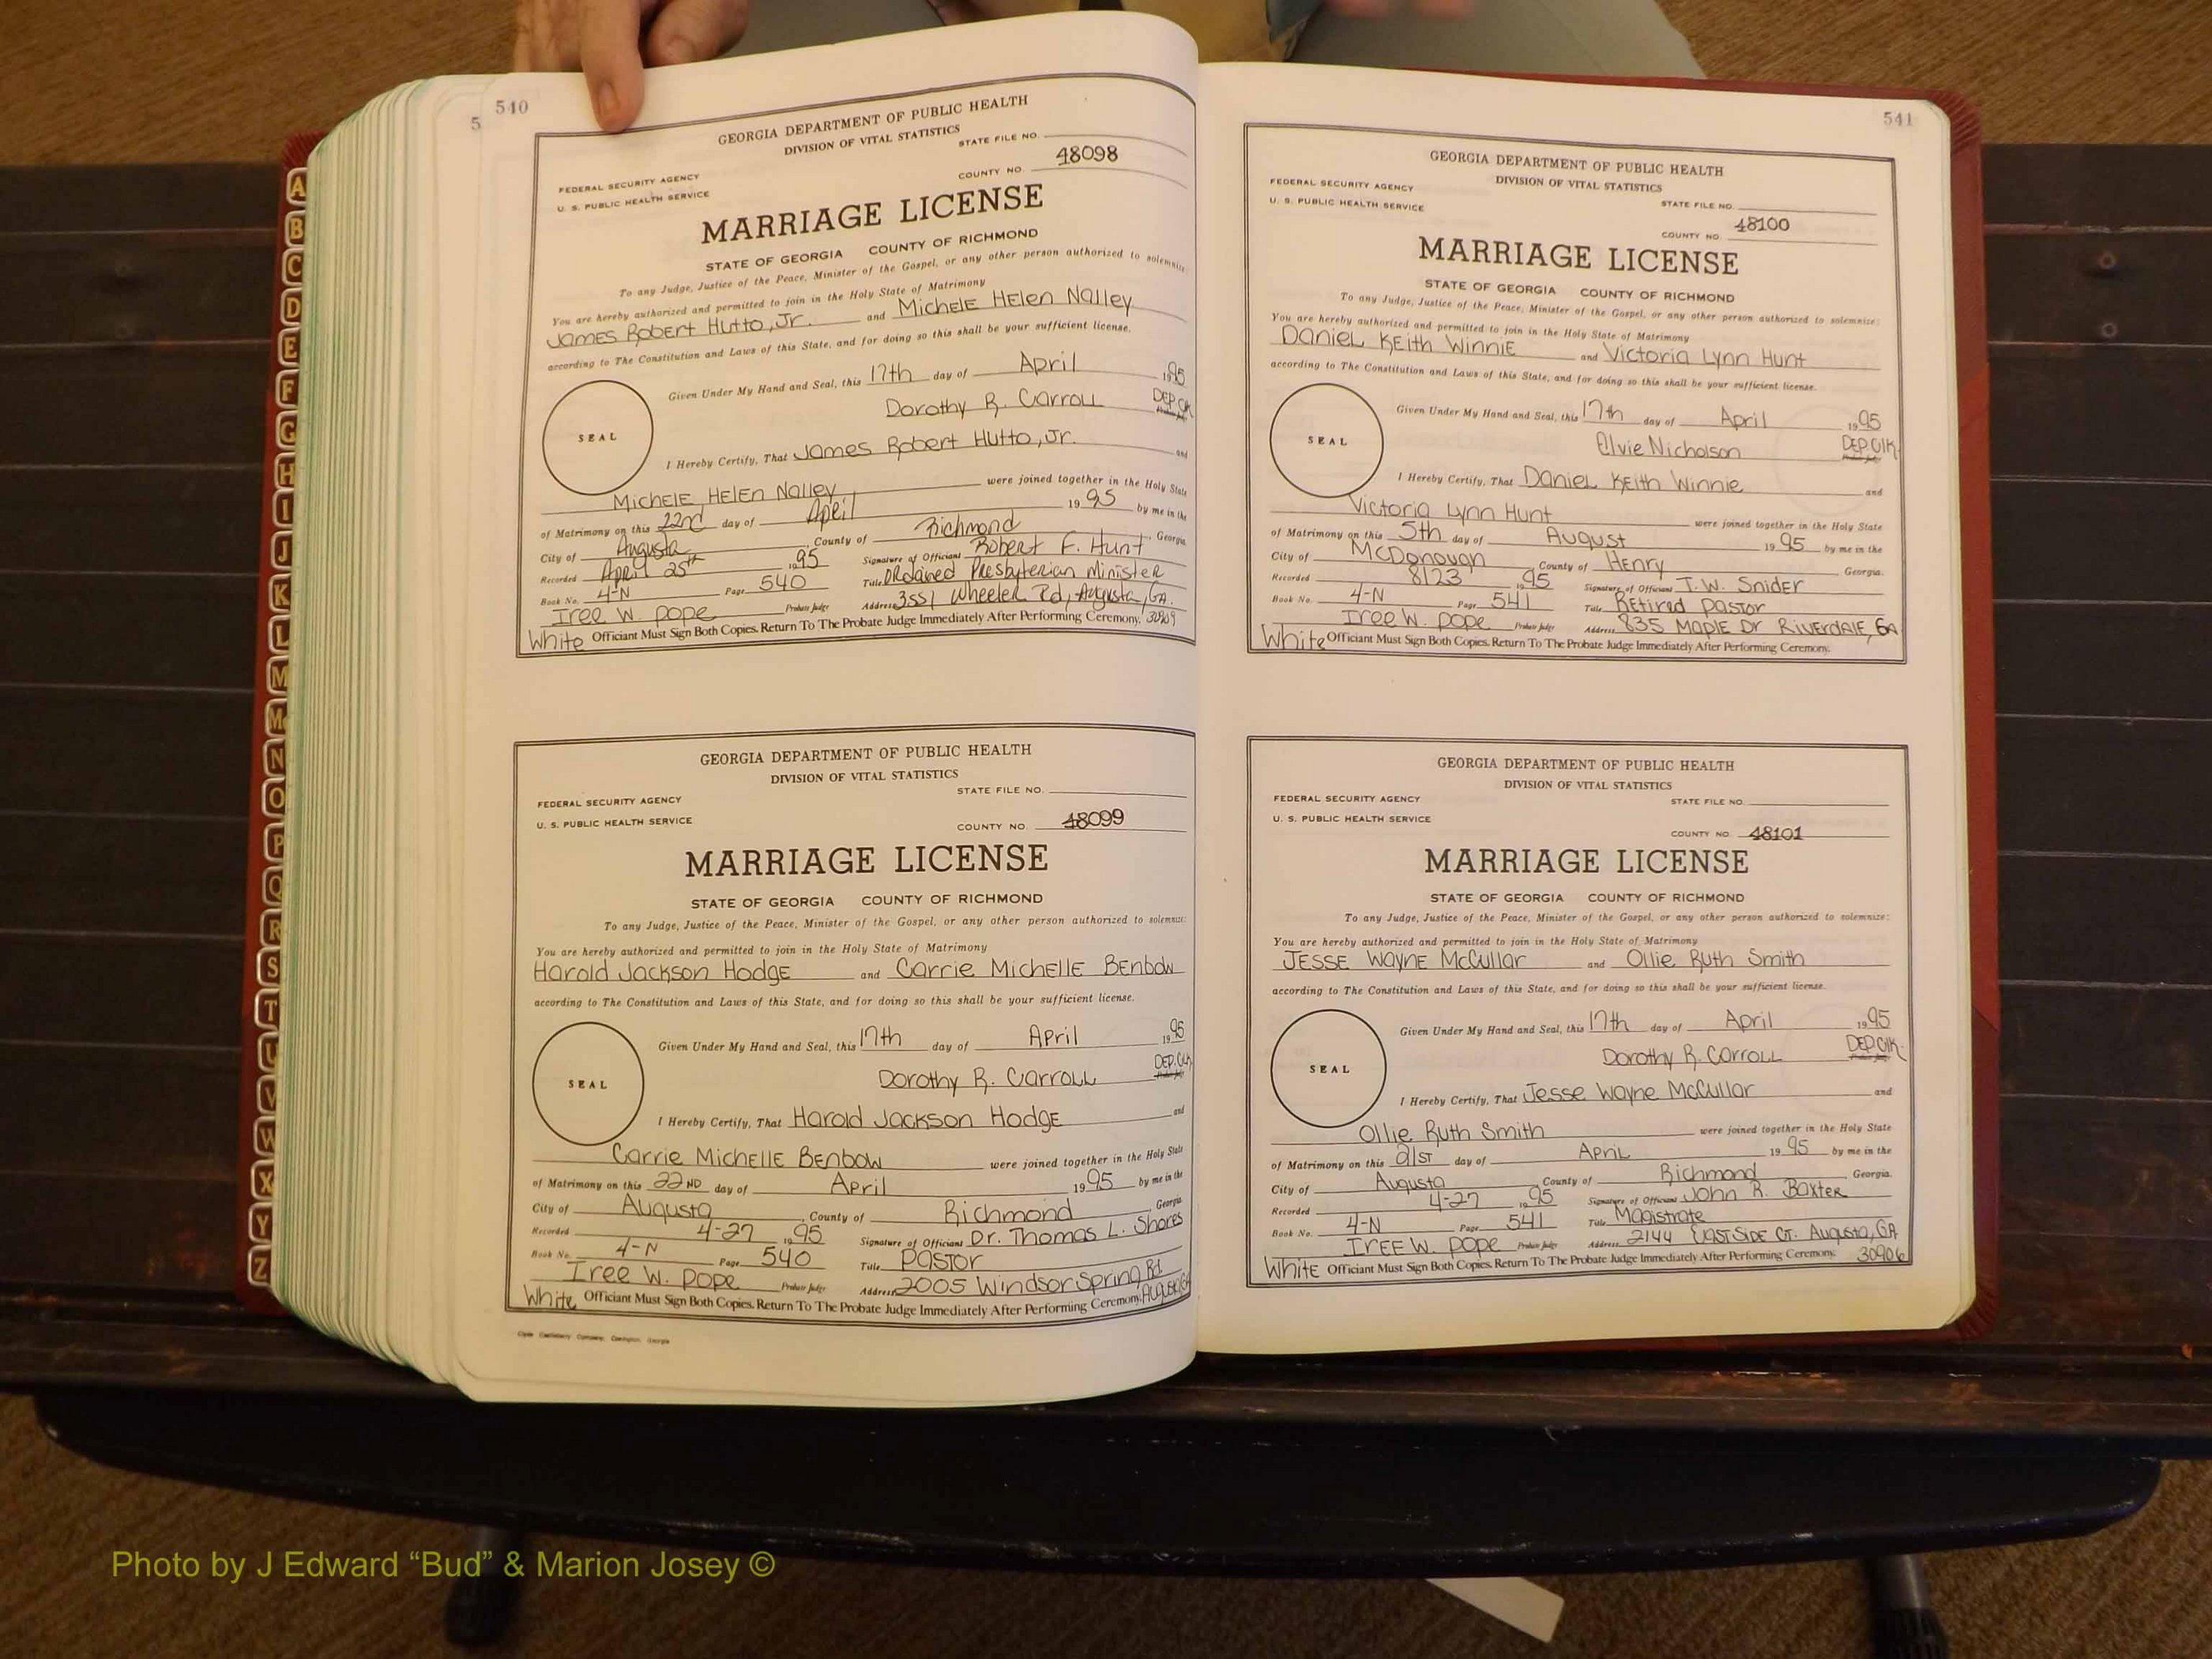 540
5
GEORGIA DEPARTMENT OF PUBLIC HEALTH
DIVISION OF VITAL STATISTICS
STATE FILE NO.
FEDERAL SECURITY AGENCY
U. S. PUBLIC HEALTH SERVICE
COUNTY NO. 48098
MARRIAGE LICENSE
STATE OF GEORGIA COUNTY OF RICHMOND
To any Judge, Justice of the Peace, Minister of the Gospel, or any other person authorized to solemnize
You are hereby authorized and permitted to join in the Holy State of Matrimony
James Robert Hutto, Jr. and Michele Helen Nalley
according to The Constitution and Laws of this State, and for doing so this shall be your sufficient license.
Given Under My Hand and Seal, this 17th day of April 1995
Dorothy R. Carroll DEP. Clk
SEAL
I Hereby Certify, That James Robert Hutto, Jr. and
Michele Helen Nalley were joined together in the Holy State
of Matrimony on this 22nd day of April 1995 by me in the
City of Augusta, County of Richmond, Georgia
Recorded April 25th 1995 Signature of Official Robert F. Hunt
Book No. 4-N Page 540 Title Ordained Presbyterian Minister
Iree W. Pope Probate Judge Address 3551 Wheeler Rd, Augusta, GA.
White Officiant Must Sign Both Copies. Return To The Probate Judge Immediately After Performing Ceremony. 30909
GEORGIA DEPARTMENT OF PUBLIC HEALTH
DIVISION OF VITAL STATISTICS
STATE FILE NO.
FEDERAL SECURITY AGENCY
U. S. PUBLIC HEALTH SERVICE
COUNTY NO. 48099
MARRIAGE LICENSE
STATE OF GEORGIA COUNTY OF RICHMOND
To any Judge, Justice of the Peace, Minister of the Gospel, or any other person authorized to solemnize:
You are hereby authorized and permitted to join in the Holy State of Matrimony
Harold Jackson Hodge and Carrie Michelle Benbow
according to The Constitution and Laws of this State, and for doing so this shall be your sufficient license.
Given Under My Hand and Seal, this 17th day of April 1995
Dorothy R. Carroll DEP. Clk
SEAL
I Hereby Certify, That Harold Jackson Hodge and
Carrie Michelle Benbow were joined together in the Holy State
of Matrimony on this 22ND day of April 1995 by me in the
City of Augusta, County of Richmond Georgia
Recorded 4-27 1995 Signature of Official Dr. Thomas L. Shores
Book No. 4-N Page 540 Title Pastor
Iree W. Pope Probate Judge Address 2005 Windsor Spring Rd.
White Officiant Must Sign Both Copies. Return To The Probate Judge Immediately After Performing Ceremony. Augusta, GA
541
GEORGIA DEPARTMENT OF PUBLIC HEALTH
DIVISION OF VITAL STATISTICS
FEDERAL SECURITY AGENCY
U. S. PUBLIC HEALTH SERVICE
STATE FILE NO.
COUNTY NO. 48100
MARRIAGE LICENSE
STATE OF GEORGIA COUNTY OF RICHMOND
To any Judge, Justice of the Peace, Minister of the Gospel, or any other person authorized to solemnize:
You are hereby authorized and permitted to join in the Holy State of Matrimony
Daniel Keith Winnie and Victoria Lynn Hunt
according to The Constitution and Laws of this State, and for doing so this shall be your sufficient license.
Given Under My Hand and Seal, this 17th day of April 1995
Elvie Nicholson DEP. Clk.
SEAL
I Hereby Certify, That Daniel Keith Winnie and
Victoria Lynn Hunt were joined together in the Holy State
of Matrimony on this 5th day of August 1995 by me in the
City of McDonough, County of Henry Georgia.
Recorded 8/23 1995 Signature of Official T.W. Snider
Book No. 4-N Page 541 Title Retired Pastor
Iree W. Pope Probate Judge Address 835 Maple Dr Riverdale, GA
White Officiant Must Sign Both Copies. Return To The Probate Judge Immediately After Performing Ceremony.
GEORGIA DEPARTMENT OF PUBLIC HEALTH
DIVISION OF VITAL STATISTICS
FEDERAL SECURITY AGENCY
STATE FILE NO.
U. S. PUBLIC HEALTH SERVICE
COUNTY NO. 48101
MARRIAGE LICENSE
STATE OF GEORGIA COUNTY OF RICHMOND
To any Judge, Justice of the Peace, Minister of the Gospel, or any other person authorized to solemnize:
You are hereby authorized and permitted to join in the Holy State of Matrimony
Jesse Wayne McCullar and Ollie Ruth Smith
according to The Constitution and Laws of this State, and for doing so this shall be your sufficient license.
Given Under My Hand and Seal, this 17th day of April 1995
Dorothy R. Carroll DEP. Clk.
SEAL
I Hereby Certify, That Jesse Wayne McCullar and
Ollie Ruth Smith were joined together in the Holy State
of Matrimony on this 21ST day of April 1995 by me in the
City of Augusta, County of Richmond Georgia.
Recorded 4-27 1995 Signature of Official John R. Baxter
Book No. 4-N Page 541 Title Magistrate
Iree W. Pope Probate Judge Address 2144 Eastside Ct. Augusta, GA
White Officiant Must Sign Both Copies. Return To The Probate Judge Immediately After Performing Ceremony. 30906
A
B
C
D
E
F
G
H
I
J
K
L
M
Mc
N
O
P
Q
R
S
T
U
V
W
X
Y
Z
Photo by J Edward “Bud” & Marion Josey ©